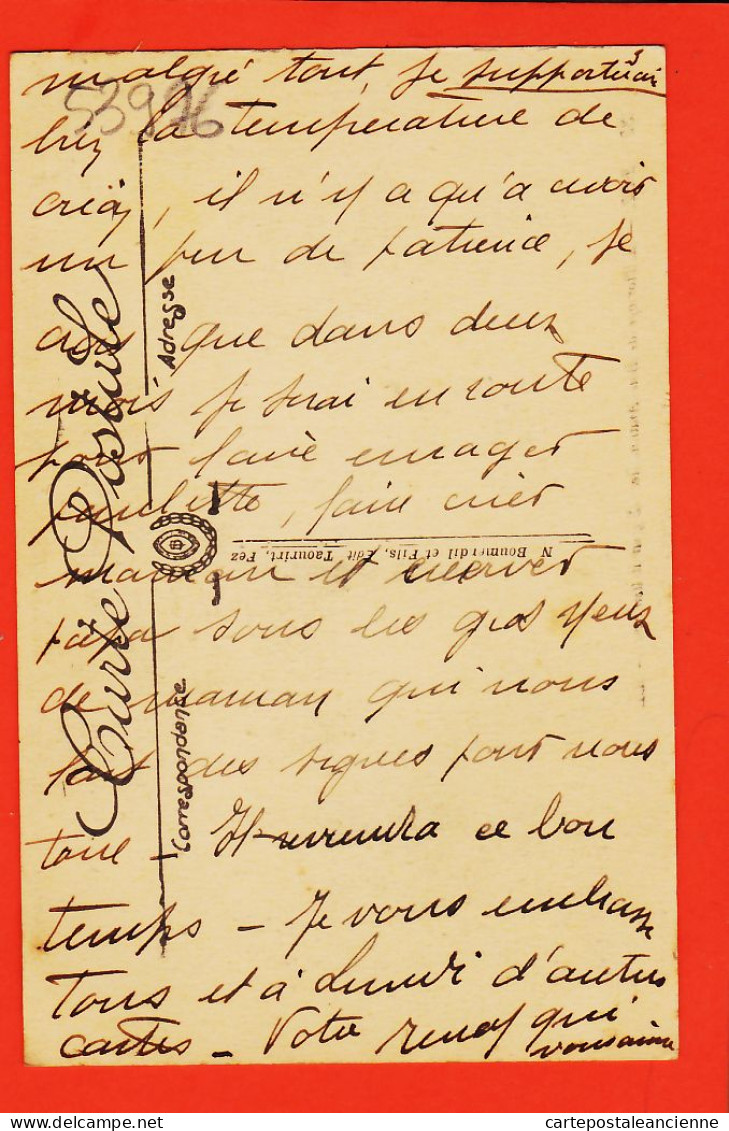 3
malgré tout, je supporterai
la température de
, il n'y a qu'à avoir
un peu de patience, je
crois que dans deux
mois je serai en route
pour faire enrager
paulette, faire crier
maman et énerver
papa sous les gros yeux
de maman qui nous
fait des signes pour nous
taire - Il reviendra ce bon
temps - Je vous embrasse
tous et à Lundi d'autres
cartes - Votre qui
vous aime
53976
Carte Postale
Adresse
Correspondance
N. Boumendil et Fils, Edit. Taourirt, Fez
cartepostaleancienne.com